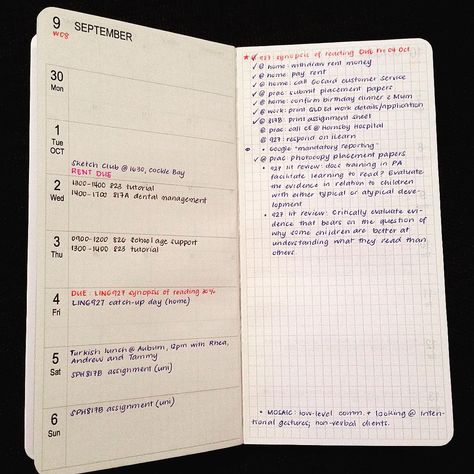 9 SEPTEMBER
W08
30
Mon
1
Tue
OCT
Sketch Club @ 1630, Cockle Bay
RENT DUE
2
Wed
1300-1400 823 tutorial
1400-1700 817A dental management
3
Thu
0900-1200 820 School age support
1300-1400 823 tutorial
4
Fri
DUE: LING927 synopsis of reading 30%
LING927 catch-up day (home)
5
Sat
Turkish lunch @ Auburn, 12pm with Rhea,
Andrew and Tammy
SPH817B assignment (uni)
6
Sun
SPH817B assignment (uni)
★ ✓ 927: synopsis of reading Due Fri 04 Oct
✓ @ home: withdraw rent money
✓ @ home: pay rent
✓ @ home: call GoCard customer service
✓ @ prac: submit placement papers
✓ @ home: confirm birthday dinner c Mum
✓ @ work: print QLD Ed work details/application
✓ @ 817B: print assignment sheet
@ prac: call CE @ Hornsby Hospital
@ 927: respond on iLearn
• Google "mandatory reporting"
✓ @ prac photocopy placement papers
• 927 lit review: does training in PA
facilitate learning to read? Evaluate
the evidence in relation to children
with either typical or atypical devel-
opment
• 927 lit review: Critically evaluate evi-
dence that bears on the question of
why some children are better at
understanding what they read than
others.
• MOSAIC: low-level comm. + looking @ inten-
tional gestures; non-verbal clients.